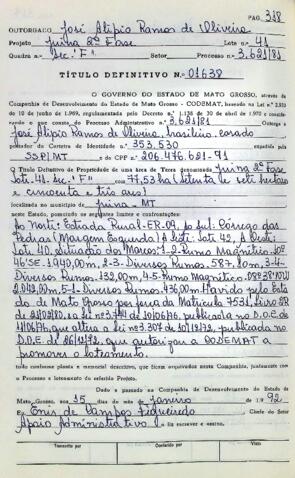 PAG. 318
OUTORGADO José Alipio Ramos de Oliveira
Projeto Juina 2ª Fase Lote n.º 41
Quadra n.º Sec. "F" Setor Processo n.º 3.621/81
TÍTULO DEFINITIVO N.º 01638
O GOVERNO DO ESTADO DE MATO GROSSO, através da
Companhia de Desenvolvimento do Estado de Mato Grosso - CODEMAT, baseado na Lei n.º
10 de junho de 1.969, regulamentada pelo Decreto n.º 1.138 de 30 de abril de 1.970 e
considerando o que consta do Processo Administrativo n.º 3.621/81 Outorga a
José Alipio Ramos de Oliveira, brasileiro, casado
portador da Carteira de Identidade n.º 353.530 expedida
SSP/MT do CPF n.º 206.476.681-91
o Título Definitivo de Propriedade de uma área de Terra denominada Juina 2ª Fase
Lote-41-Sec. "F" com 77,53 ha (Setenta e sete hectares
e cincoenta e tres ares)
localizada no município de Juina - MT
neste Estado, possuindo os seguintes limites e confrontações:
Ao Norte: Estrada Rural-ER-09, Ao Sul: Córrego das
Pedras (Margem Esquerda) A Leste: Lote 42, A Oeste:
Lote 40. Situação dos Marcos: 1-2-Rumo Magnético
46'SE-1.940,00m, 2-3-Diversos Rumos-587,80m, 3-4-
Diversos Rumos-132,00m, 4-5-Rumo Magnético
2.042,00m, 5-1-Diversos Rumos-436,00m. Havido pelo Esta
do de Mato Grosso por força da Matricula 7531, Livro
publicada no D.O.E. de
que altera a lei nº 3.307 de 10/12/72, publicada no
D.O.E. de 26/12/72, que autorizou a CODEMAT a
promover o loteamento.
tudo conforme planta e memorial descritivo, que ficam arquivados nesta Companhia, juntamente com
o Processo e loteamento do referido Projeto.
Dado e passado na Companhia de Desenvolvimento do Estado de
Mato Grosso, aos 15 dias de Janeiro de 1.992
Eu Enis de Campos Figueiredo Chefe do Setor
Apoio Administrativo fiz escrever e assino.
Transcrito por
Conferido por
Visto